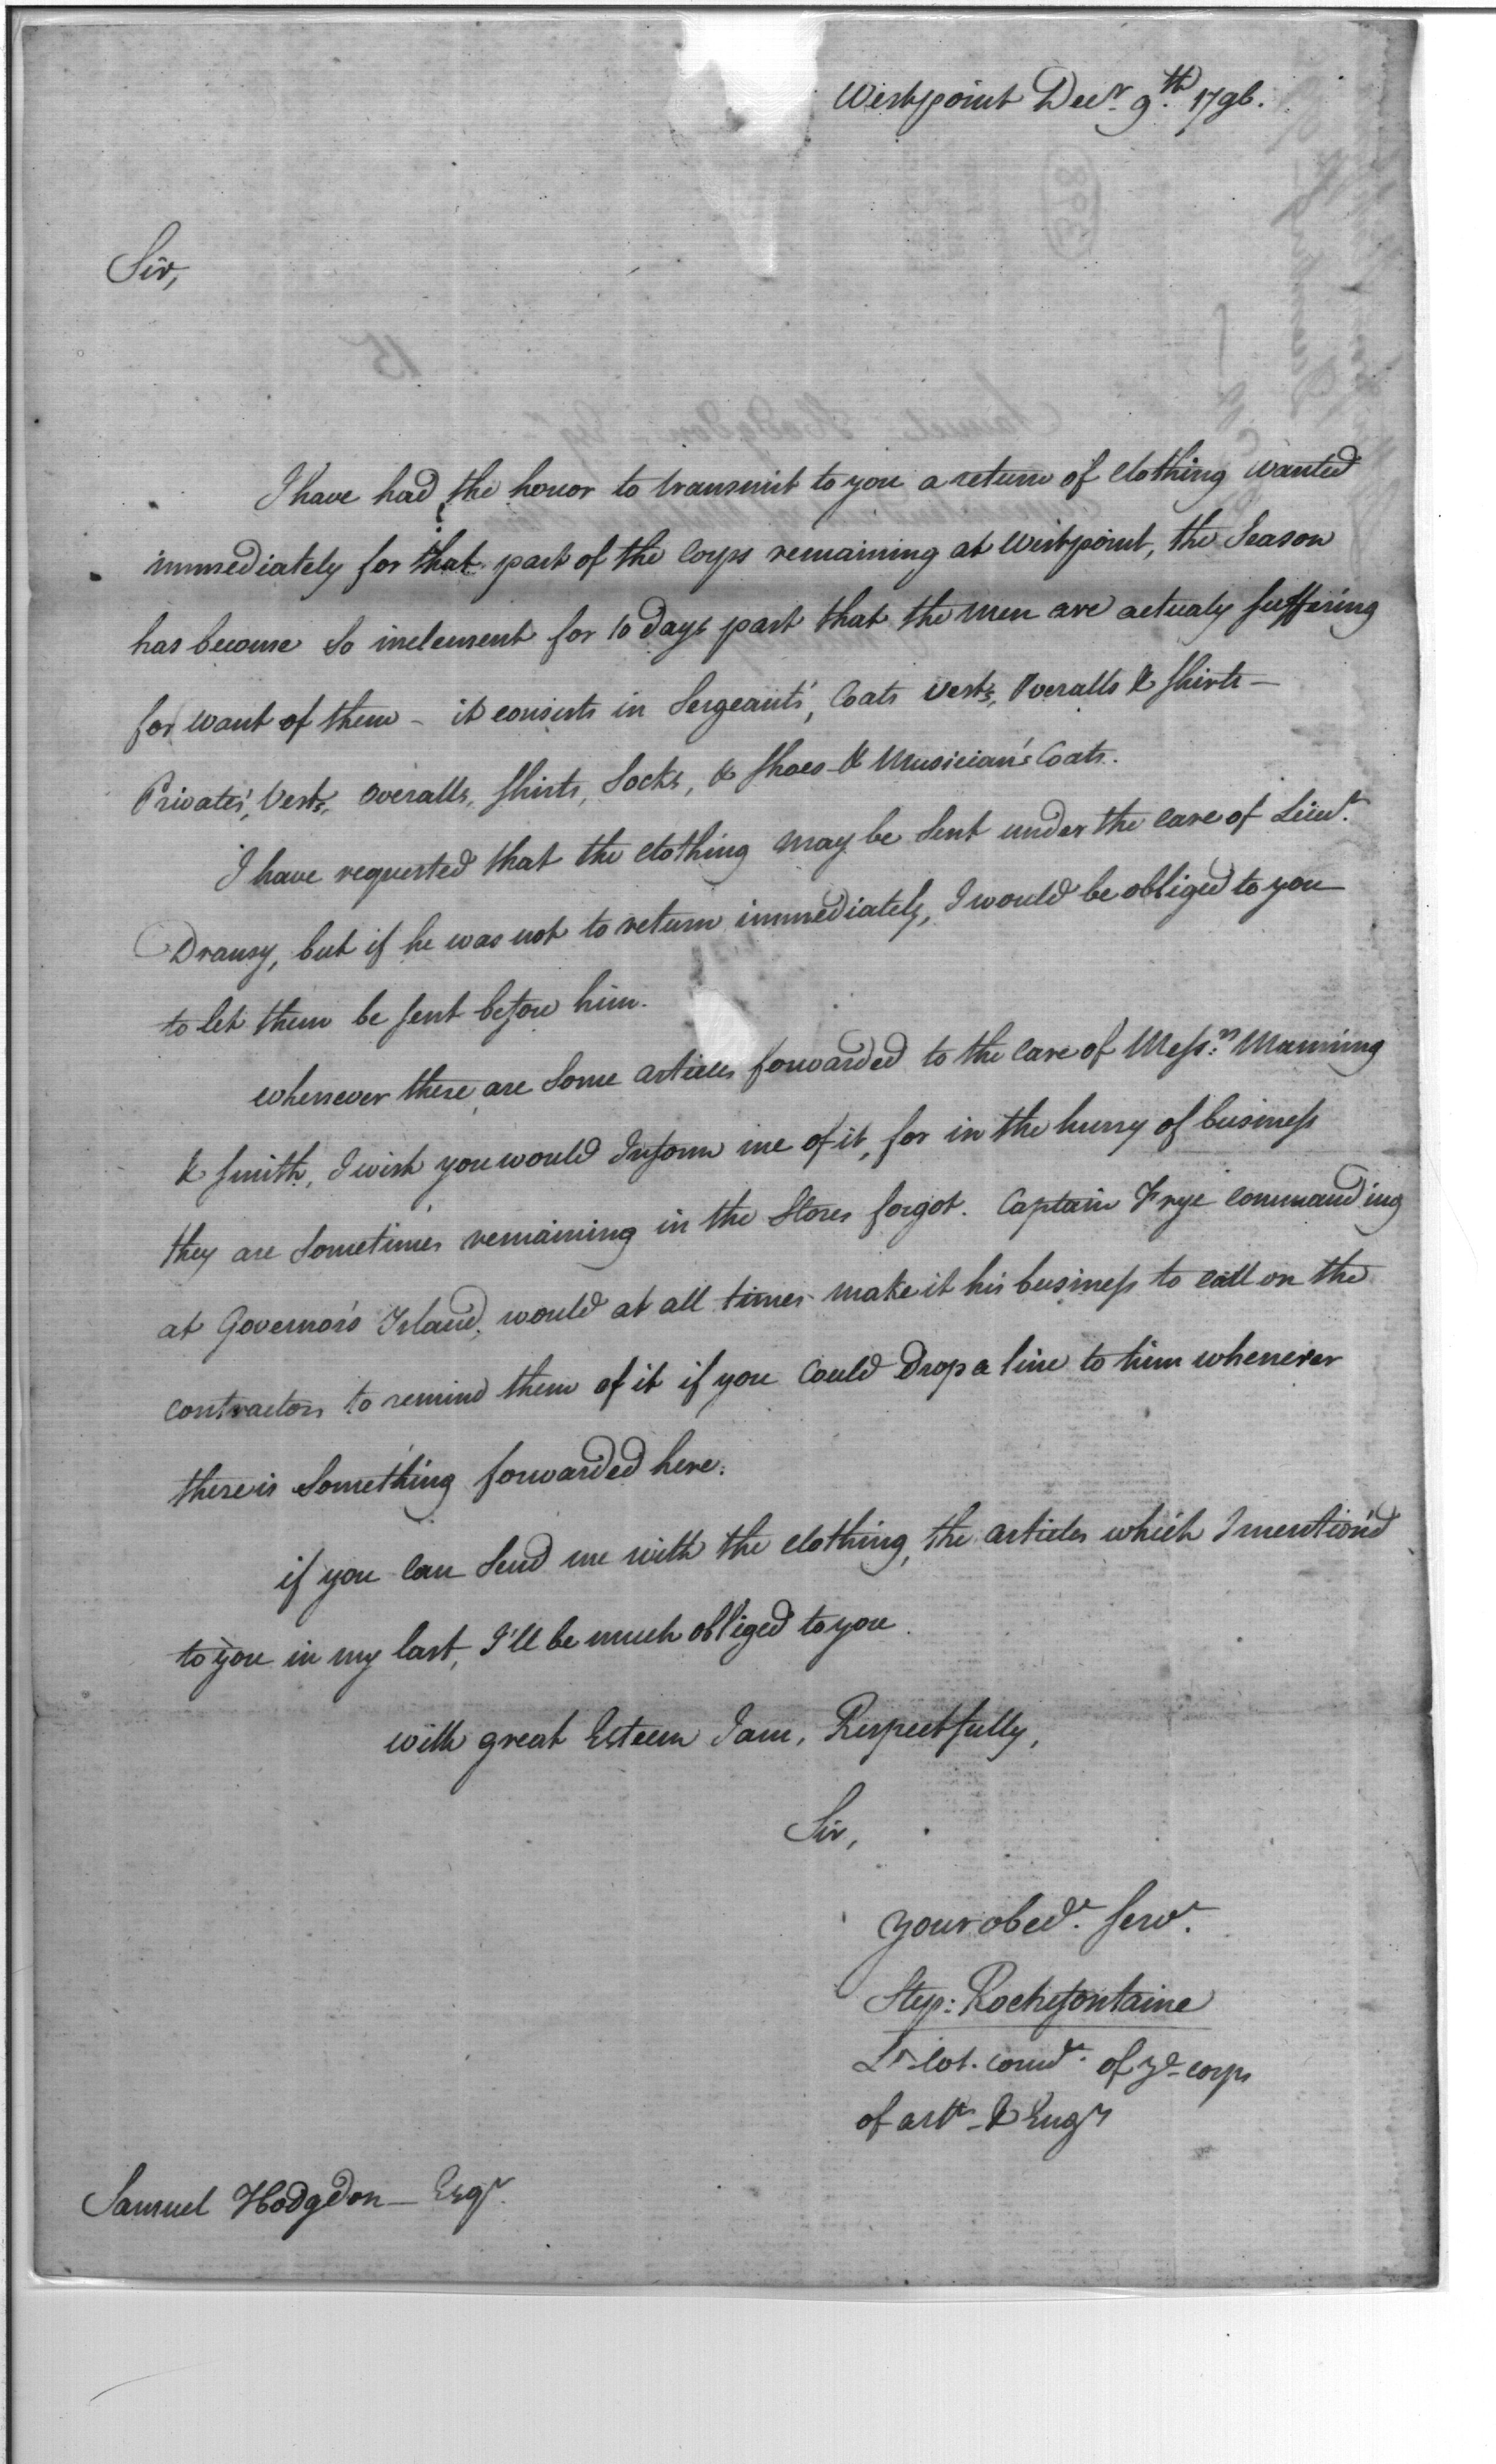 Westpoint Decr. 9th. 1796.
Sir,
I have had the honor to transmit to you a return of clothing wanted
immediately for that part of the Corps remaining at Westpoint, the Season
has become So inclement for 10 days past that the men are actualy suffering
for want of them - it consists in Sergeants', Coats Vests, Overalls & Shirts -
Privates', Vests, Overalls, Shirts, Socks, & Shoes - & Musician's Coats.
I have requested that the clothing may be Sent under the care of Lieut.
Dransy, but if he was not to return immediately, I would be obliged to you
to let them be sent before him.
whenever there are Some articles forwarded to the care of Messrs. Manning
& Smith, I wish you would Inform me of it, for in the hurry of business
they are Sometimes remaining in the Stores forgot. Captain Frye commanding
at Governor's Island, would at all times make it his business to call on the
contractors to remind them of it if you Could Drop a line to him whenever
there is Something forwarded here.
if you Can Send me with the clothing, the articles which I mention'd
to you in my last, I'll be much obliged to you.
with great Esteem I am, Respectfully,
Sir,
your obedt. servt.
Step: Rochefontaine
Lt. Col. comdt. of ye corps
of arts. & Engrs
Samuel Hodgdon - Esqr.